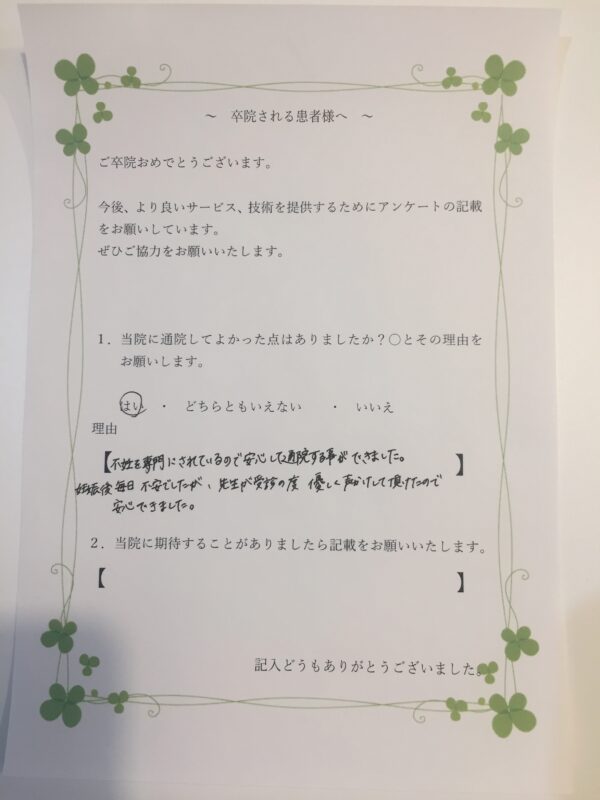 ～ 卒院される患者様へ ～
ご卒院おめでとうございます。
今後、より良いサービス、技術を提供するためにアンケートの記載
をお願いしています。
ぜひご協力をお願いいたします。
1．当院に通院してよかった点はありましたか？〇とその理由を
お願いします。
はい ・ どちらともいえない ・ いいえ
理由
【不妊を専門にされているので安心して通院する事ができました。】
妊娠後毎日不安でしたが、先生が受診の度 優しく声かけして頂けたので
安心できました。
2．当院に期待することがありましたら記載をお願いいたします。
【 】
記入どうもありがとうございました。